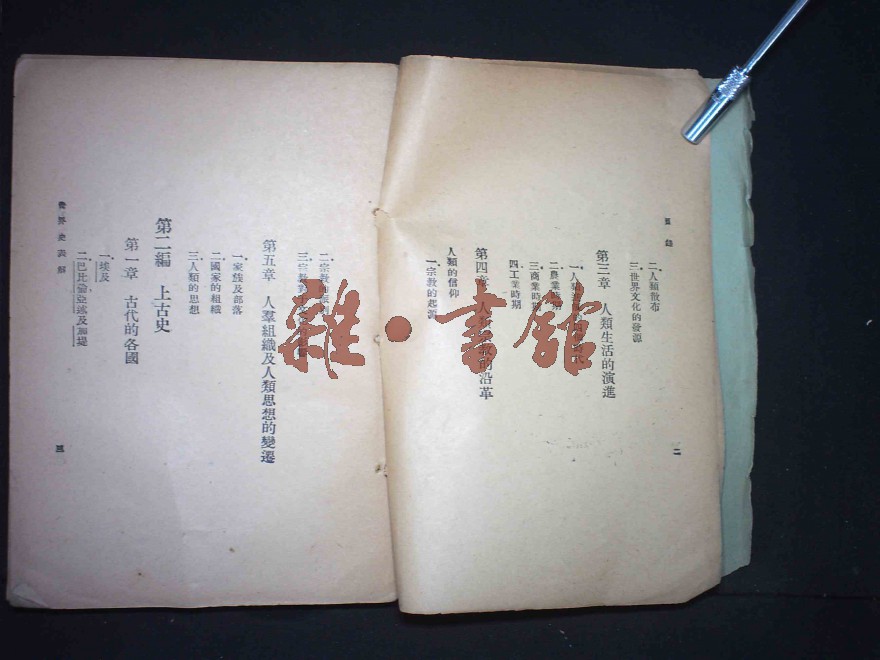 目錄
二．人類散布
三．世界文化的發源
第三章　人類生活的演進
一．人類
二．農業時期
三．商業時期
四．工業時期
第四章　人類的沿革
人類的信仰
一．宗教的起源
二
二．宗教的
三．宗教
第五章　人羣組織及人類思想的變遷
一．家族及部落
二．國家的組織
三．人類的思想
第二編　上古史
第一章　古代的各國
一．埃及
二．巴比倫、亞述及迦勒堤
世界史表解
三
雜·書館